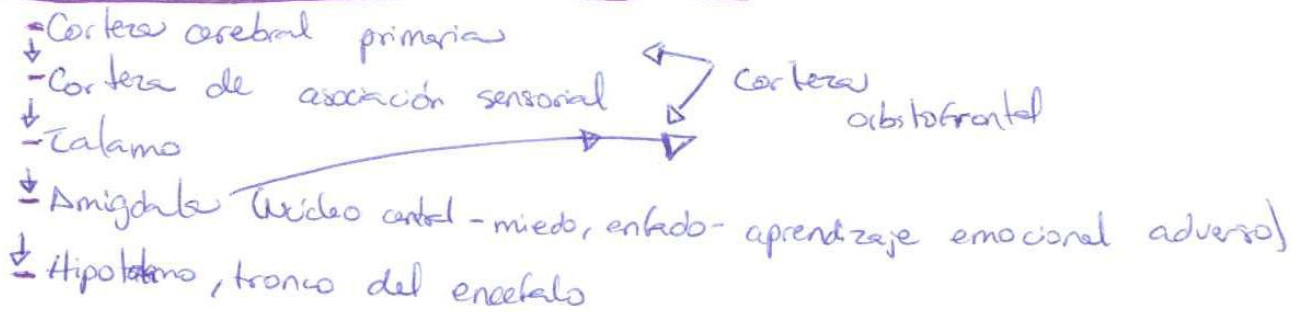 - Corteza cerebral primaria
- Corteza de asociación sensorial
Corteza
orbitofrontal
- Talamo
- Amigdala (núcleo central - miedo, enfado - aprendizaje emocional adverso)
- Hipotalamo, tronco del encefalo